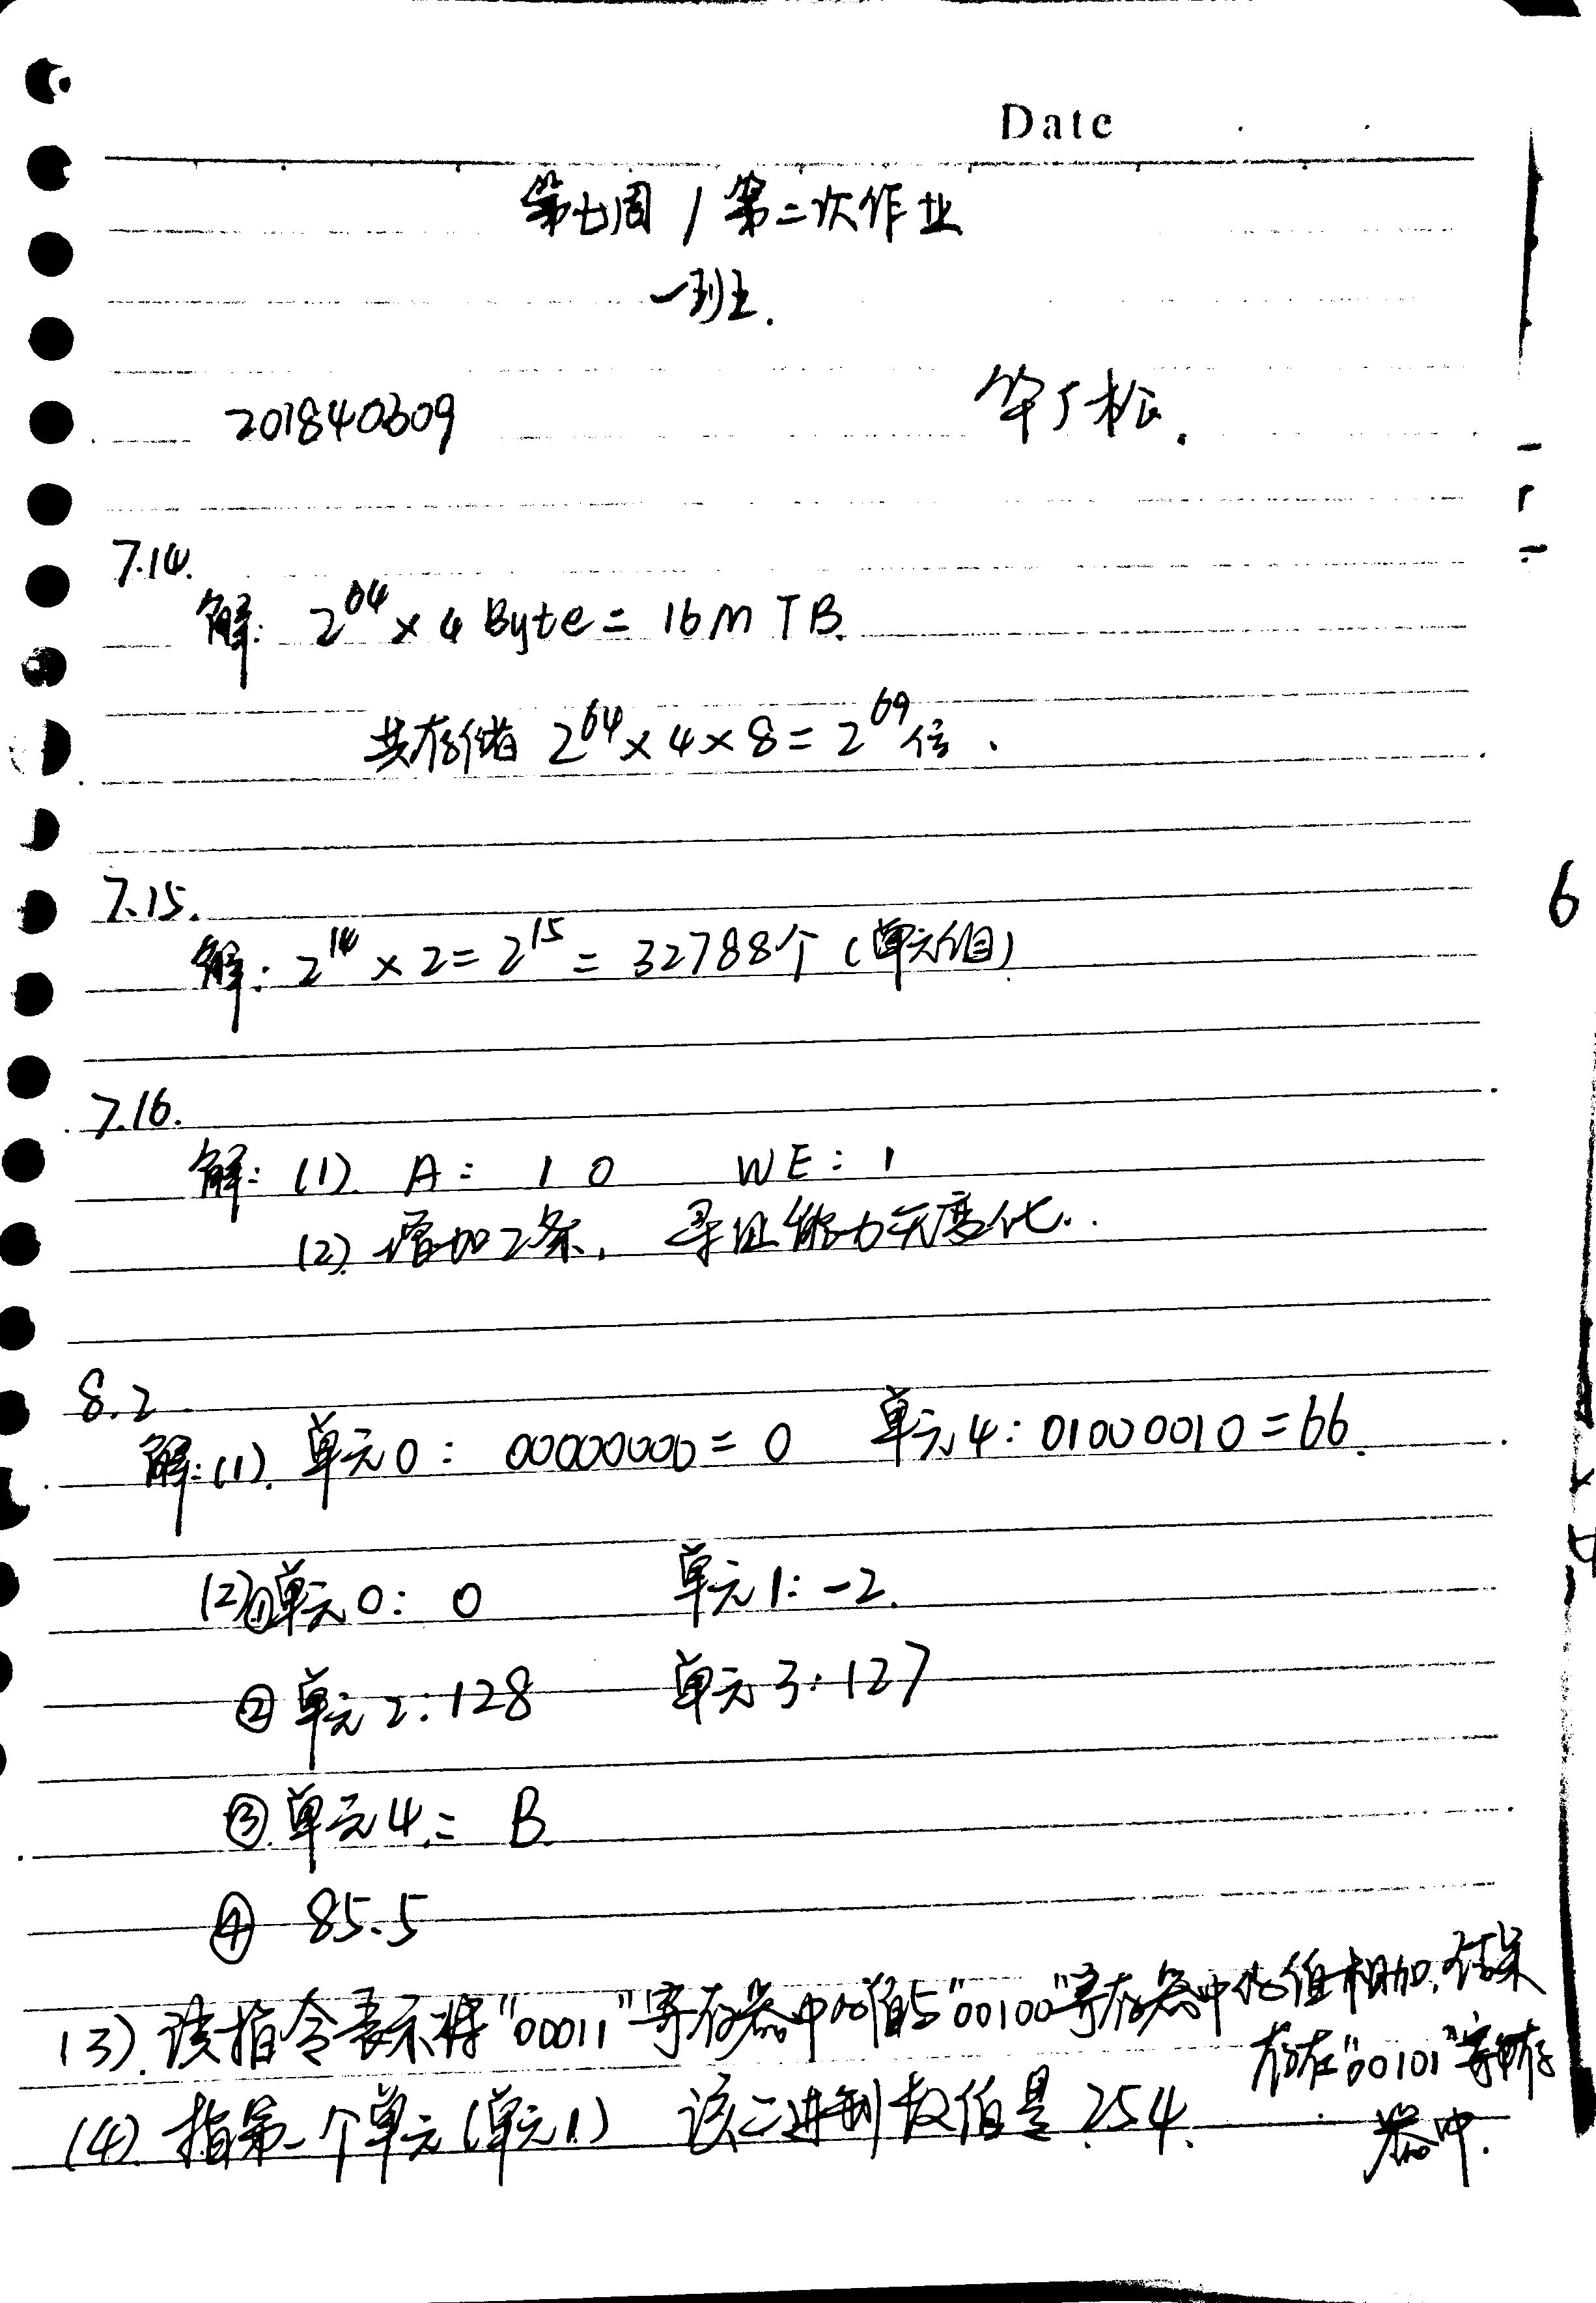 Date
第七周 / 第二次作业
一班.
201840309
7.14.
解: 2^64 × 4 Byte = 16M TB.
共存储 2^64 × 4 × 8 = 2^69 位.
7.15.
解: 2^14 × 2 = 2^15 = 32788个 (单元值)
6
7.16.
解: (1). A: 1 0 WE: 1
(2). 增加2条, 寻址能力无变化.
8.2
解: (1). 单元0: 00000000 = 0 单元4: 01000010 = 66.
(2) ① 单元0: 0 单元1: -2.
② 单元2: 128 单元3: 127
③ 单元4: = B.
④ 85.5
(3). 该指令表示将"00011"寄存器中的值与"00100"寄存器中的值相加, 结果
存在"00101"寄存
器中.
(4). 指第一个单元(单元1.) 该二进制数值是 254.